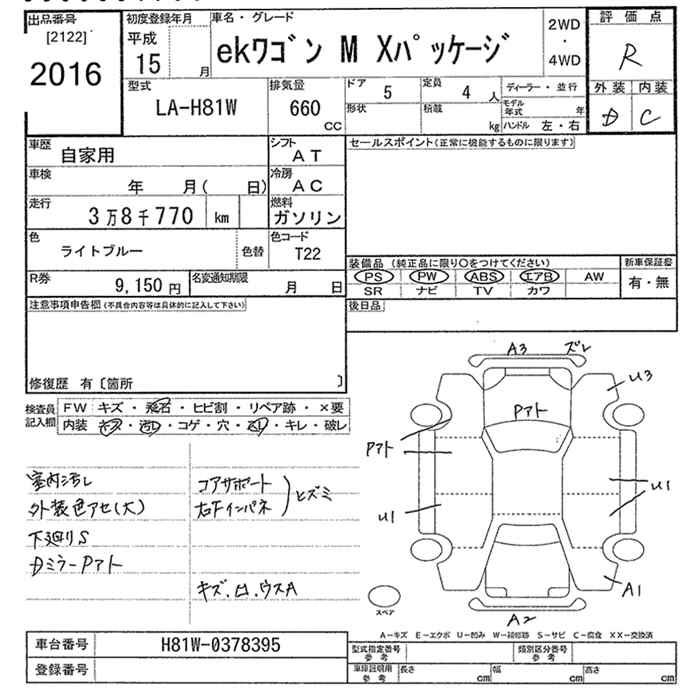 出品番号
[2122]
2016
初度登録年月
平成
15 月
車名・グレード
ekワゴン M Xパッケージ
2WD
・
4WD
評価点
R
外装 内装
D C
型式
LA-H81W
排気量
660
CC
ドア 5
定員 4 人
形状
積載 kg
ディーラー・並行
モデル年式 年
ハンドル 左・右
車歴
自家用
シフト
AT
車検
年 月( 日)
冷房
AC
走行
3万8千770 km
燃料
ガソリン
色
ライトブルー
色替
色コード
T22
R券
9,150円
名変通知期限
月 日
セールスポイント(正常に機能するものに限ります)
装備品(純正品に限り○をつけてください)
PS PW ABS エアB AW
SR ナビ TV カワ
新車保証書
有・無
後日品
注意事項申告欄(不具合内容等は具体的に記入して下さい)
修復歴 有〔箇所 〕
検査員記入欄
FW キズ・飛石・ヒビ割・リペア跡・×要
内装 キズ・汚レ・コゲ・穴・スレ・キレ・破レ
室内汚レ
外装色アセ(大)
下廻りS
DミラーPアト
コアサポート
右Fインパネ
ヒズミ
キズ.凹.ウスA
A3 ズレ
U3
Pアト
Pアト
U1
U1
A1
A2
スペア
A−キズ E−エクボ U−凹み W−補修跡 S−サビ C−腐食 XX−交換済
車台番号 H81W-0378395
登録番号
型式指定番号
参考
類別区分番号
参考
車庫証明用
参考
長さ cm
幅 cm
高さ cm